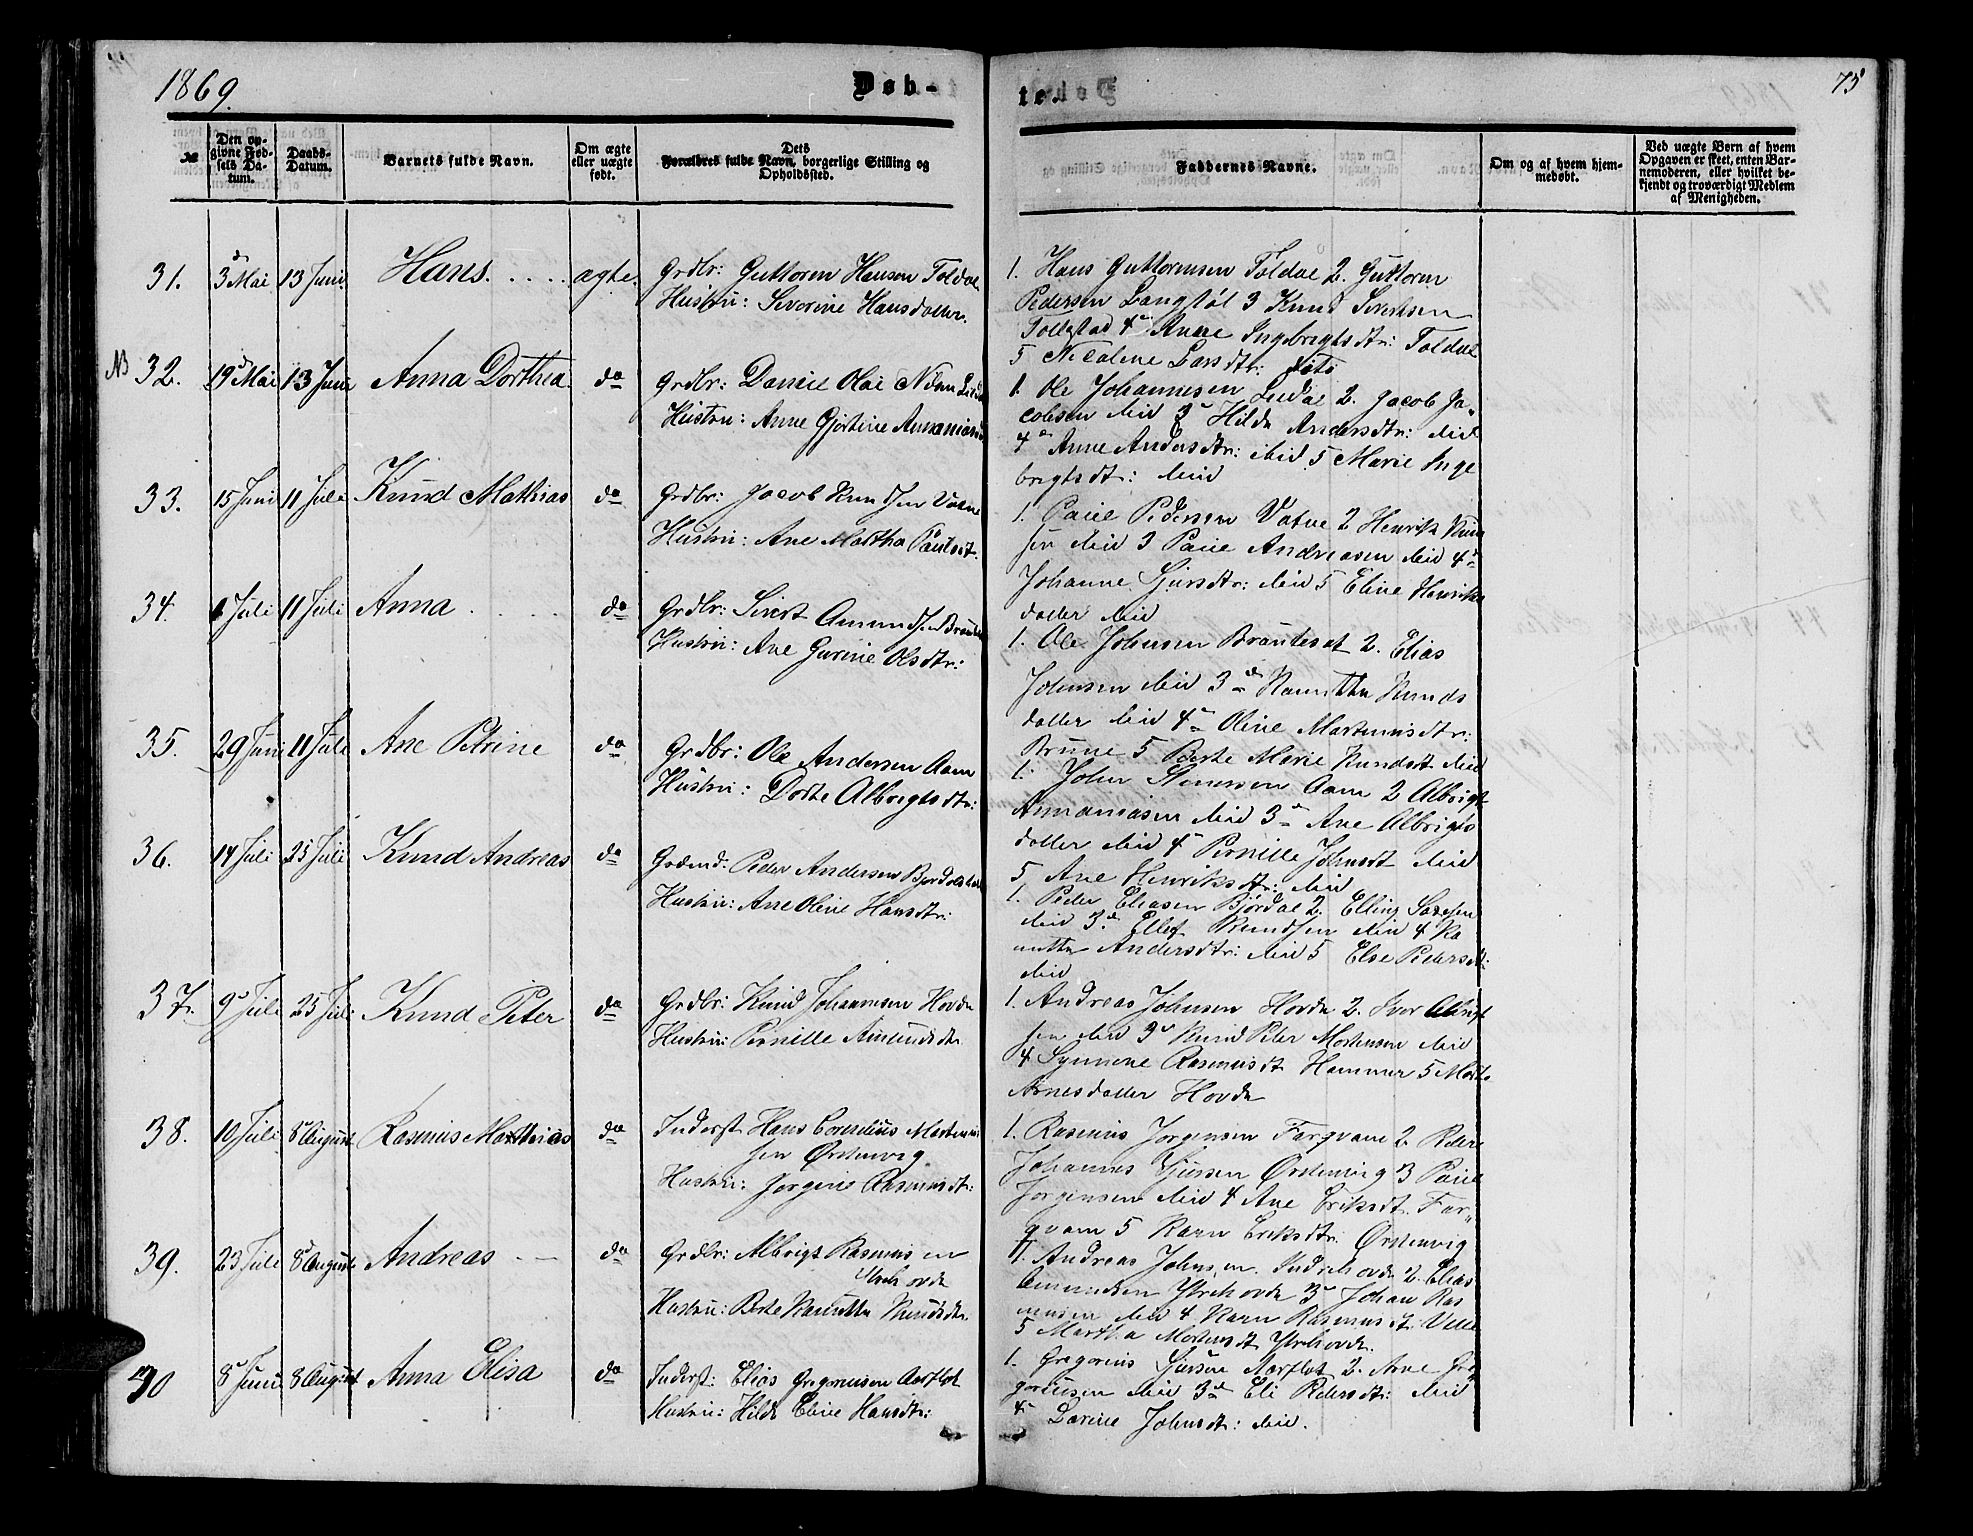 1869.
Døb-
te.
75
№
Den op-
givne Fød-
sels Da-
tum.
Daabs-
Datum.
Barnets fulde Navn.
Om ægte
eller uægte
født.
Dets
Forældres fulde Navn, borgerlige Stilling og
Opholdssted.
Faddernes Navne.
Om og af hvem hjem-
medøbt.
Ved uægte Børn af hvem
Opgaven er skeet, enten Bar-
nemoderen, eller hvilket be-
kjendt og troværdigt Medlem
af Menigheden.
31. 3 Mai 13 Juni Hans. ægte. Grdbr: Guttorm Hansen Foldal
Hustru: Severine Hansdatter.
1. Hans Guttormsen Foldal 2. Guttorm
Pedersen Langstøl 3 Knud Sivertsen
4 Anne Ingebrigtsdtr: Foldal
5 Nicoline Larsdtr: dito
NB 32. 19 Mai 13 Juni Anna Dorthea do Grdbr: Daniel Olai
Hustru: Anne Gjertine
1. Ole Johannesen 2. Jacob Ja-
cobsen ibid 3 Hilda Andersdtr: ibid
4 Anne Andersdtr: ibid 5 Marie Inge
brigtsdt: ibid
33. 15 Juni 11 Juli Knud Mathias do Grdbr: Jacob Knudsen Vatne
Hustru: Ane Martha Paulsdt.
1. Paul Pedersen Vatne 2 Henrik Knud
sen ibid 3 Paul Andreasen ibid 4
Johanne Sjursdtr: ibid 5 Eline Henriks
datter ibid
34. 1 Juli 11 Juli Anna do Grdbr: Sivert Amundsen
Hustru: Ane Gurine Olsdtr:
1. Ole Johnsen Brauteset 2. Elias
Johnsen ibid 3 Knutte Knuds
datter ibid 4 Oline Martinusdtr:
Brune 5 Berte Marie Knudsdt ibid
35. 29 Juni 11 Juli Ane Petrine do Grdbr: Ole Andersen Aam
Hustru: Dorte Albrigtsdtr:
1. John Aam 2 Albrigt
Annaniasen ibid 3 Ane Albrigts
datter ibid 4 Pernille Johnsdt ibid
5 Ane Henriksdtr: ibid
36. 14 Juli 25 Juli Knud Andreas do Peder Andersen
Hustru: Ane Oline Hansdtr:
1. Peder Eliasen Bjørdal 2. Elling
ibid 3. Ellef Knudsen ibid 4 Ka
nutta Andersdtr: ibid 5 Else Pedersdt:
ibid
37. 9 Juli 25 Juli Knud Peter do Grdbr: Knud Johannesen Hovde
Hustru: Pernille Amundsdtr
1. Andreas Johnsen Hovde 2. Iver Albrigt
sen ibid 3 Knud Peter Mortensen ibid
4 Synneve Rasmusdt Hammer 5 Marte
Arnesdatter Hovde
38. 10 Juli 8 August Rasmus Matthias do Inderst Hans Cornelius Martinus
sen Ørstenvig
Hustru: Jørgine Rasmusdt:
1. Rasmus Jørgensen Farqvam 2. Peder
Johannes Sjursen Ørstenvig 3 Paul
Jørgensen ibid 4 Ane Eriksdt. Far-
qvam 5 Karn Eriksdtr: Ørstenvig
39. 23 Juli 8 August Andreas do Grdbr: Albrigt Rasmusen
Ytrehovde
Hustru: Berte Knutta Knudsdtr.
1. Andreas Johnsen Indrehovde 2. Elias
Amundsen Ytrehovde 3 Johan Ras
musen ibid 4 Karn Rasmusdt:
5 Martha Mortensdt Ytrehovde.
40 8 Juni 8 August Anna Elisa do Inderst: Elias Gregoriusen Aarflot
Hustru: Hilde Eline Hansdtr:
1. Gregorius Sjursen Aarflot 2. Arne Gre
goriusen ibid 3 Eli Pedersdtr: ibid
4 Larine Johnsdtr: ibid.